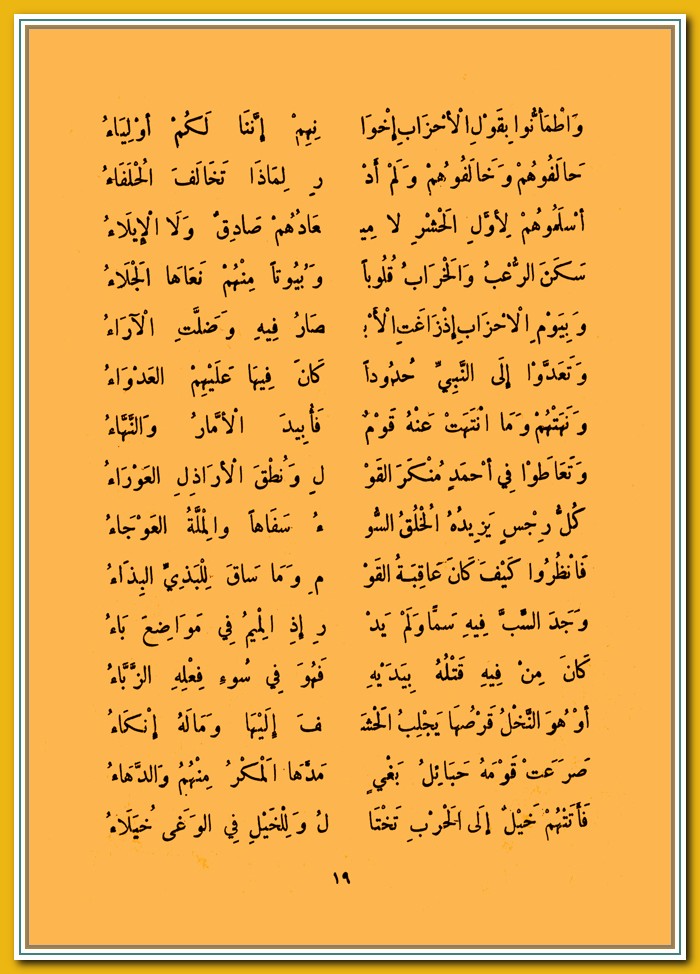 وَاطْمَأَنُّوا بِقَوْلِ الْأَحْزَابِ إِخْوَا نِهِمْ إِنَّنَا لَكُمْ أَوْلِيَاءُ
حَالَفُوهُمْ وَخَالَفُوهُمْ وَلَمْ أَدْ رِ لِمَاذَا تَخَالَفَ الْحُلَفَاءُ
أَسْلَمُوهُمْ لِأَوَّلِ الْحَشْرِ لَا مِيـ ـعَادُهُمْ صَادِقٌ وَلَا الْإِيلَاءُ
سَكَنَ الرُّعْبُ وَالْخَرَابُ قُلُوبًا وَبُيُوتًا مِنْهُمْ نَعَاهَا الْجَلَاءُ
وَبِيَوْمِ الْأَحْزَابِ إِذْ زَاغَتِ الْأَبْـ ـصَارُ فِيهِ وَضَلَّتِ الْآرَاءُ
وَتَعَدَّوْا إِلَى النَّبِيِّ حُدُودًا كَانَ فِيهَا عَلَيْهِمُ الْعَدْوَاءُ
وَنَهَتْهُمْ وَمَا انْتَهَتْ عَنْهُ قَوْمٌ فَأُبِيدَ الْأَمَّارُ وَالنَّهَّاءُ
وَتَعَاطَوْا فِي أَحْمَدٍ مُنْكَرَ الْقَوْ لِ وَنُطْقُ الْأَرَاذِلِ الْعَوْرَاءُ
كُلُّ رِجْسٍ يَزِيدُهُ الْخُلُقُ السُّو ءُ سَفَاهًا وَالْمِلَّةُ الْعَوْجَاءُ
فَانْظُرُوا كَيْفَ كَانَ عَاقِبَةُ الْقَوْ مِ وَمَا سَاقَ لِلْبَذِيِّ الْبَذَاءُ
وَجَدَ السَّبَّ فِيهِ سَمًّا وَلَمْ يَدْ رِ إِذِ الْمِيمُ فِي مَوَاضِعَ بَاءُ
كَانَ مِنْ فِيهِ قَتْلُهُ بِيَدَيْهِ فَهْوَ فِي سُوءِ فِعْلِهِ الزَّبَّاءُ
أَوْ هُوَ النَّحْلُ قَرْصُهَا يَجْلِبُ الْحَتْـ ـفَ إِلَيْهَا وَمَا لَهُ إِنْكَاءُ
صَرَعَتْ قَوْمَهُ حَبَائِلُ بَغْيٍ مَدَّهَا الْمَكْرُ مِنْهُمُ وَالدَّهَاءُ
فَأَتَتْهُمْ خَيْلٌ إِلَى الْحَرْبِ تَخْتَا لُ وَلِلْخَيْلِ فِي الْوَغَى خُيَلَاءُ
١٩